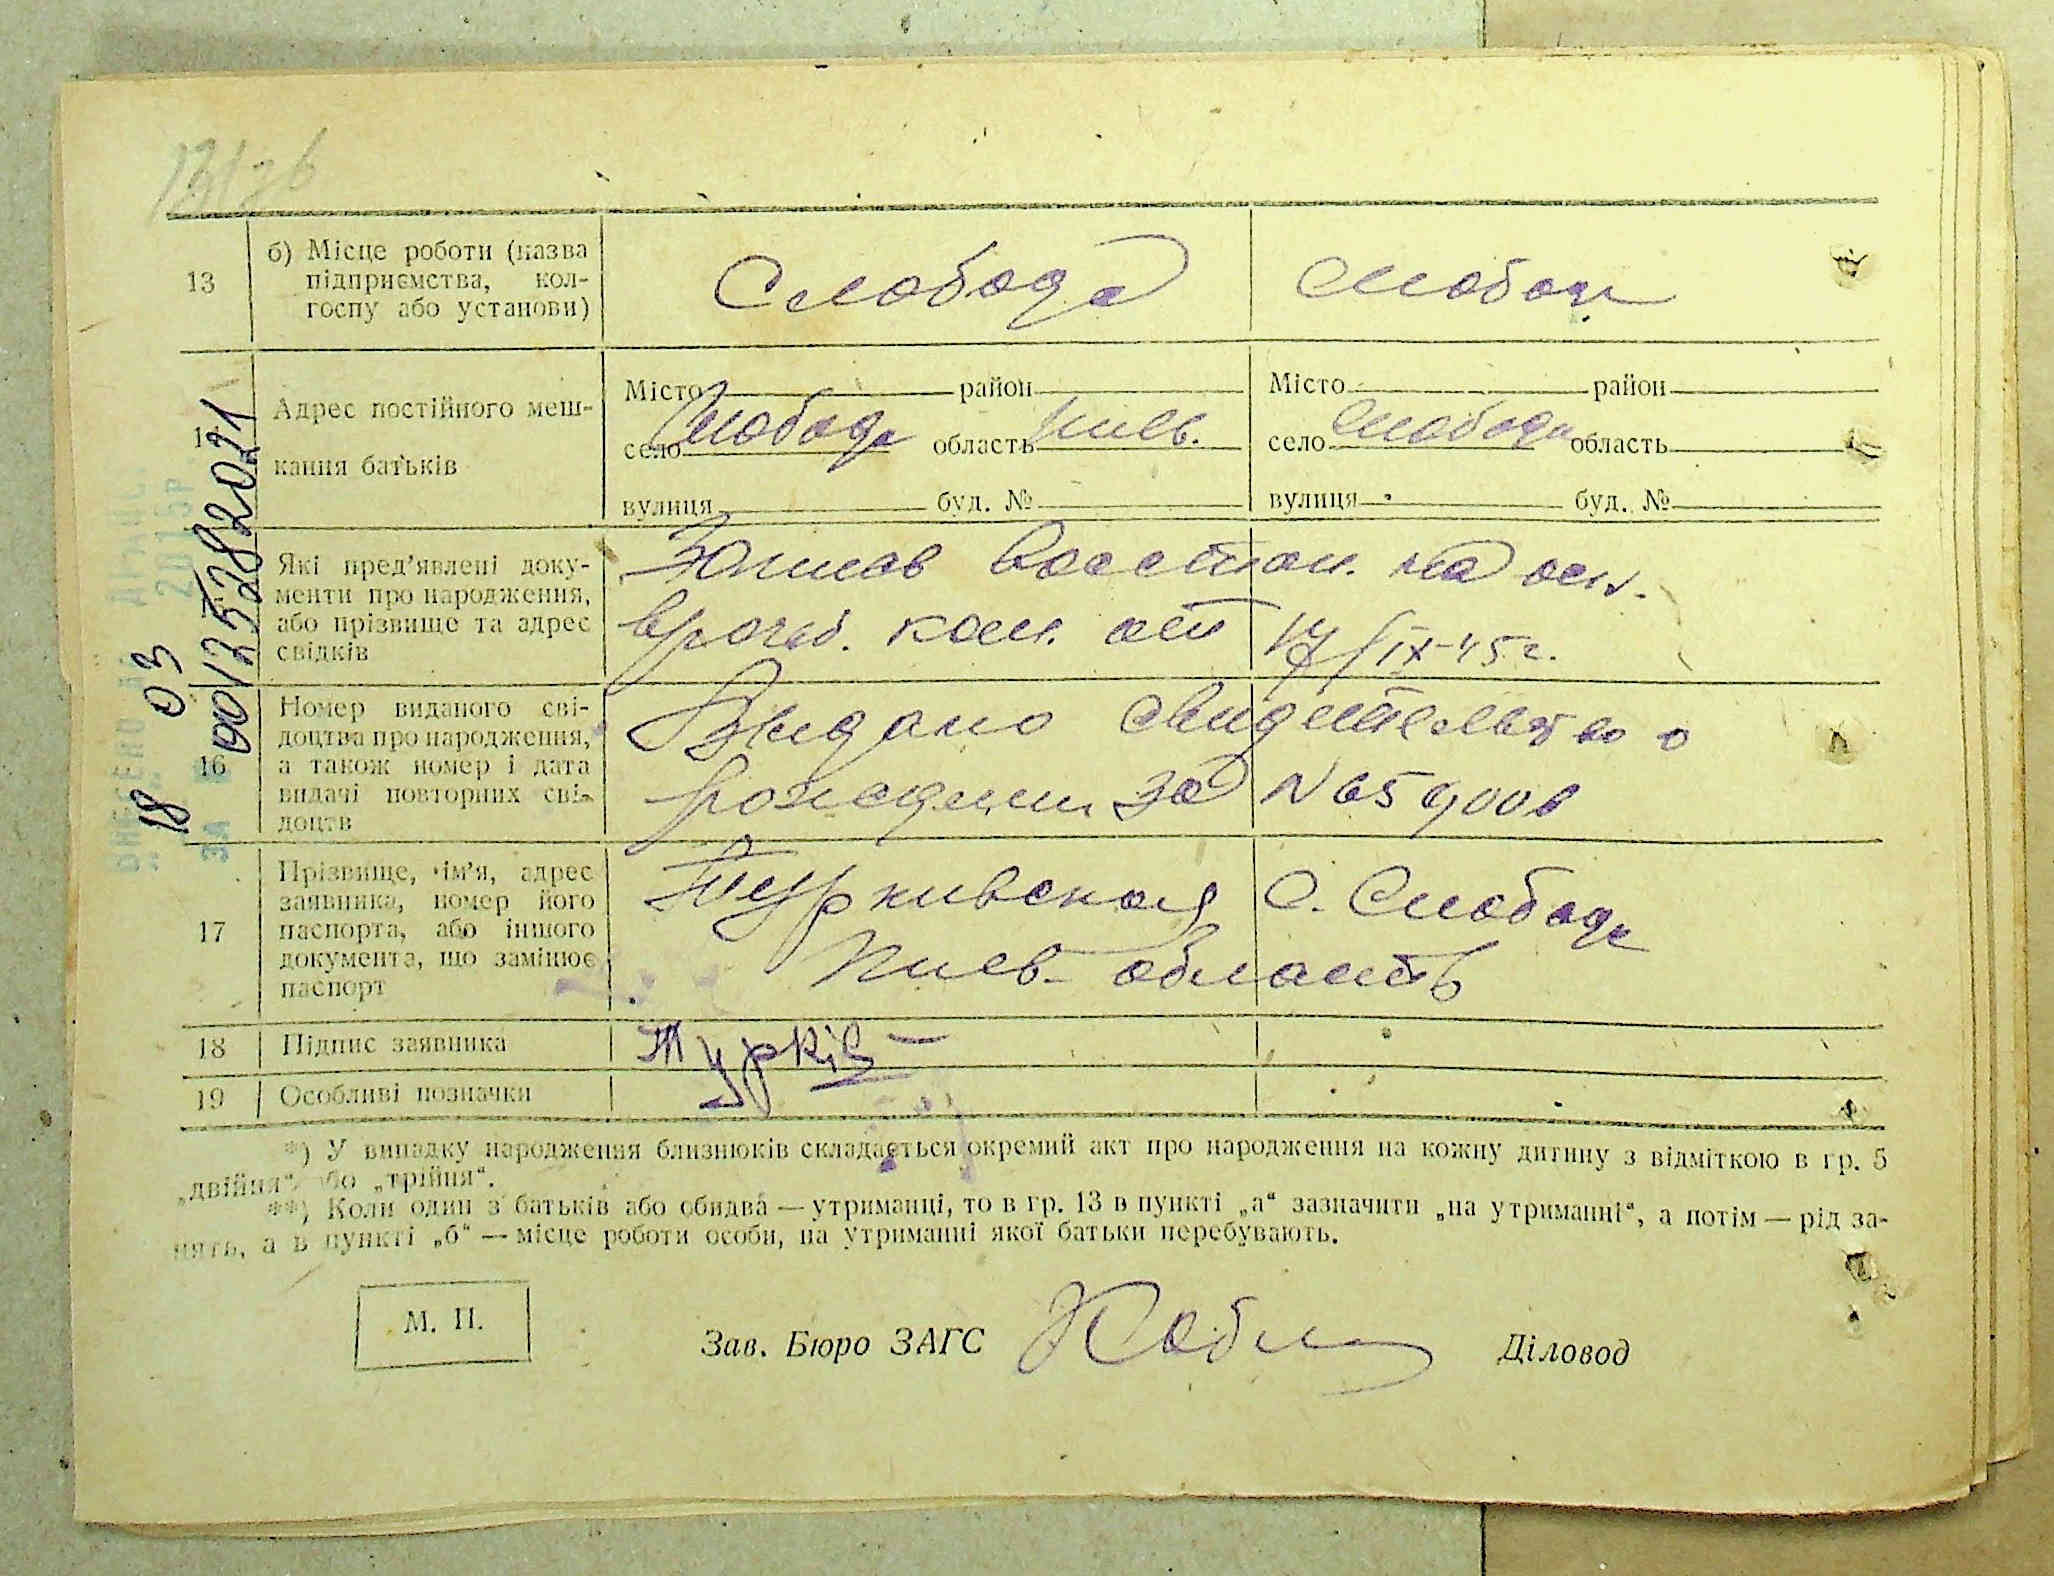 13
б) Місце роботи (назва
підприємства, кол-
госпу або установи)
Слобода
Слобода
Адрес постійного меш-
кання батьків
Місто район
село Слобода область Киев.
вулиця буд. №
Місто район
село Слобода область
вулиця буд. №
Які пред'явлені доку-
менти про народження,
або прізвище та адрес
свідків
Записв восстан. на осн.
врачеб. ком. от 17/IX-45 г.
16
Номер виданого сві-
доцтва про народження,
а також номер і дата
видачі повторних сві-
доцтв
Выдано свидетельство о
рождении за N
17
Прізвище, ім'я, адрес
заявника, номер його
паспорта, або іншого
документа, що замінює
паспорт
Туркивская С. Слобода
Киев. область
18 Підпис заявника
Турків
19 Особливі позначки
*) У випадку народження близнюків складається окремий акт про народження на кожну дитину з відміткою в гр. 5
„двійня“ або „трійня“.
**) Коли один з батьків або обидва — утриманці, то в гр. 13 в пункті „а“ зазначити „на утриманні“, а потім — рід за-
нять, а в пункті „б“ — місце роботи особи, на утриманні якої батьки перебувають.
М. П.
Зав. Бюро ЗАГС
Діловод
18 03
00125282021